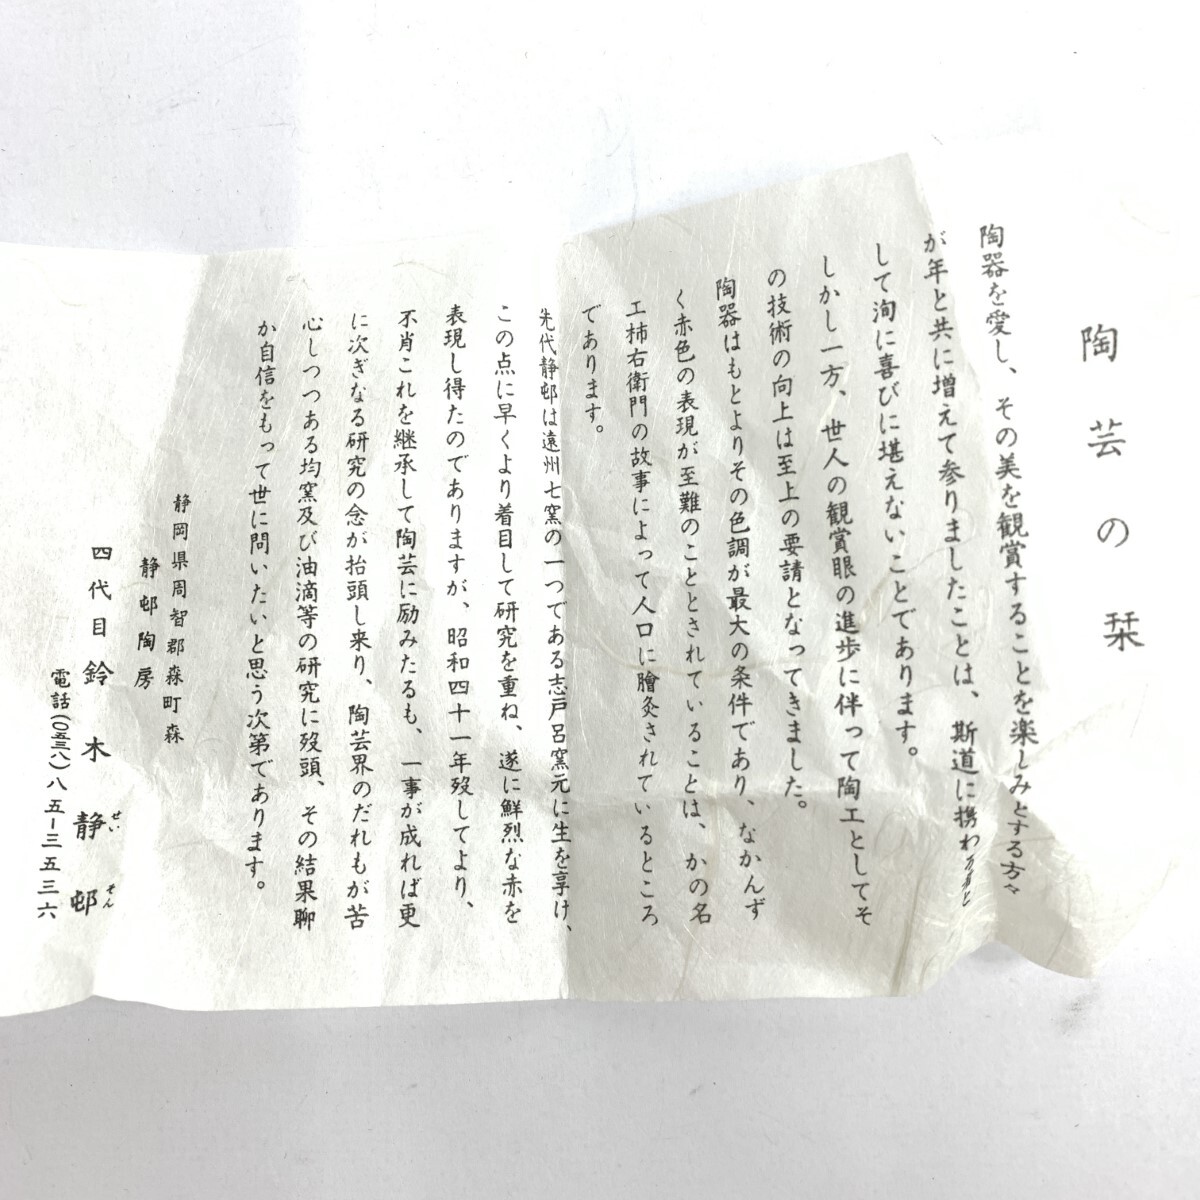 陶芸の栞
陶器を愛し、その美を観賞することを楽しみとする方々
が年と共に増えて参りましたことは、斯道に携わ
して洵に喜びに堪えないことであります。
しかし一方、世人の観賞眼の進歩に伴って陶工としてそ
の技術の向上は至上の要請となってきました。
陶器はもとよりその色調が最大の条件であり、なかんず
く赤色の表現が至難のこととされていることは、かの名
工柿右衛門の故事によって人口に膾灸されているところ
であります。
先代静邨は遠州七窯の一つである志戸呂窯元に生を享け、
この点に早くより着目して研究を重ね、遂に鮮烈な赤を
表現し得たのでありますが、昭和四十一年歿してより、
不肖これを継承して陶芸に励みたるも、一事が成れば更
に次ぎなる研究の念が抬頭し来り、陶芸界のだれもが苦
心しつつある均窯及び油滴等の研究に歿頭、その結果聊
か自信をもって世に問いたいと思う次第であります。
静岡県周智郡森町森
静邨陶房
四代目鈴木静邨
せいそん
電話(〇五三八)八五-三五三六